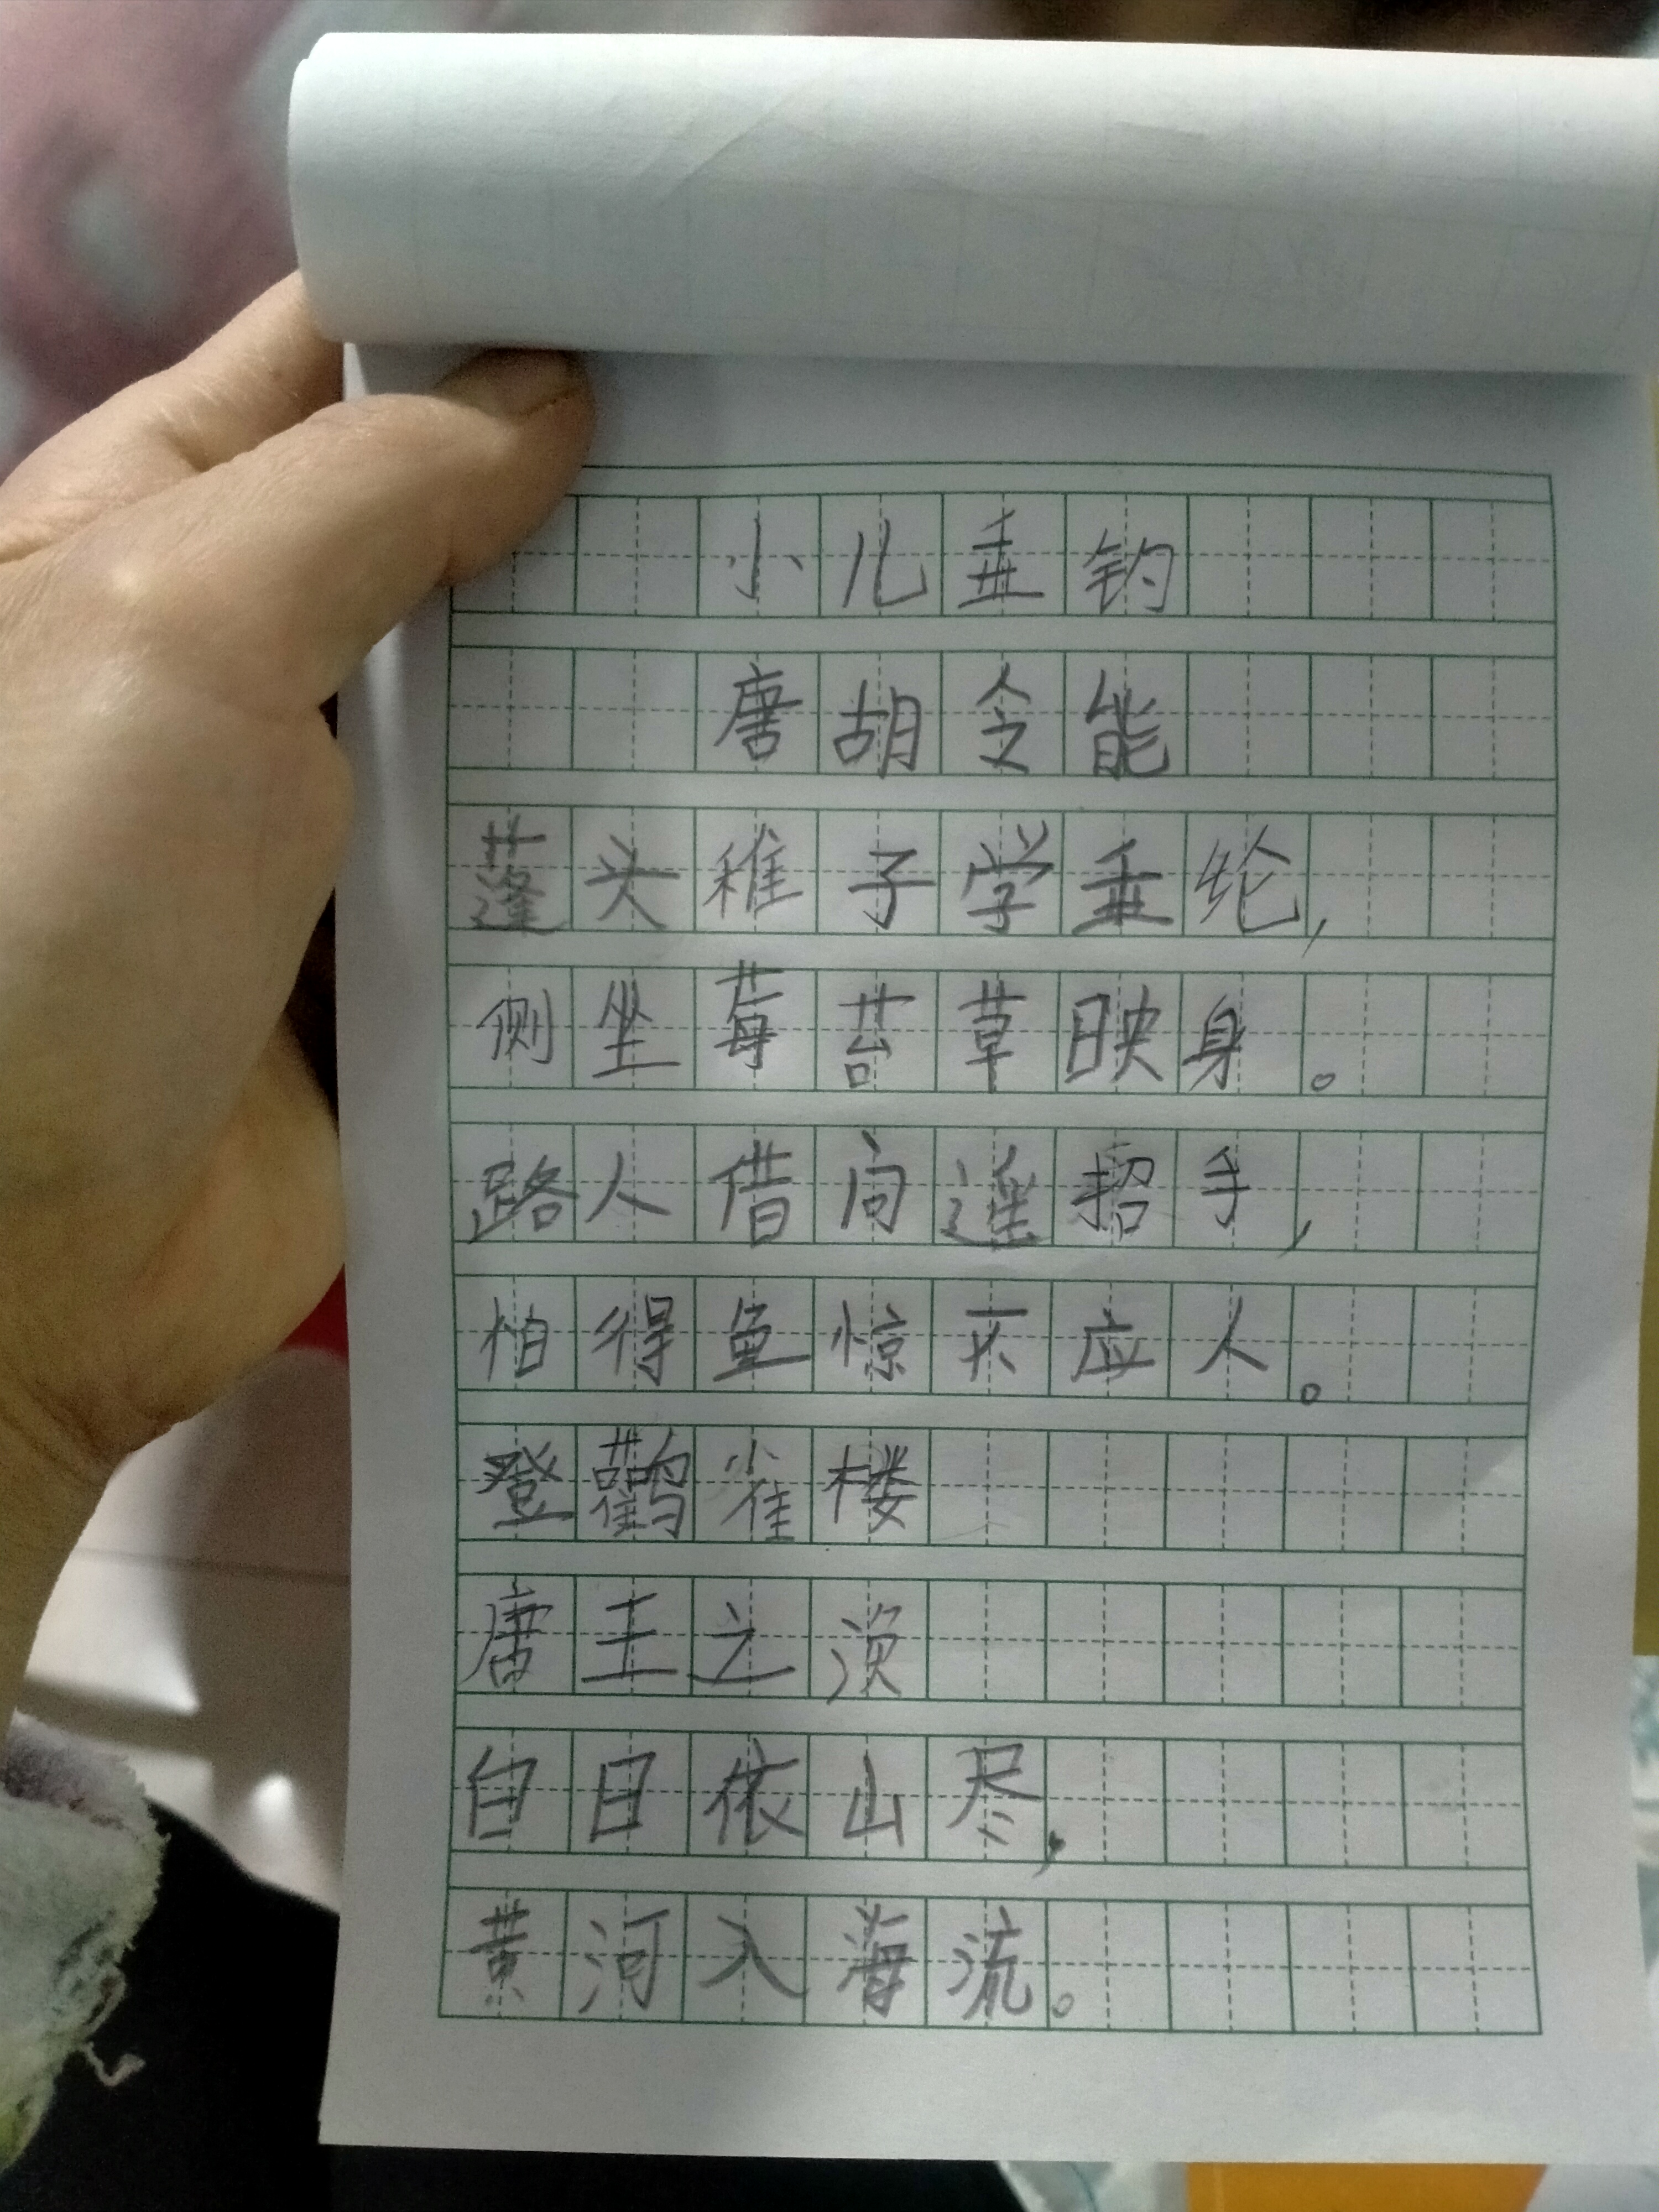 小儿垂钓
唐胡令能
蓬头稚子学垂纶,
侧坐莓苔草映身。
路人借问遥招手,
怕得鱼惊不应人。
登鹳雀楼
唐王之涣
白日依山尽,
黄河入海流。